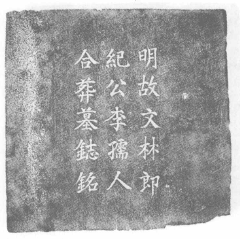 明故文林郎
紀公李孺人
合葬墓誌銘